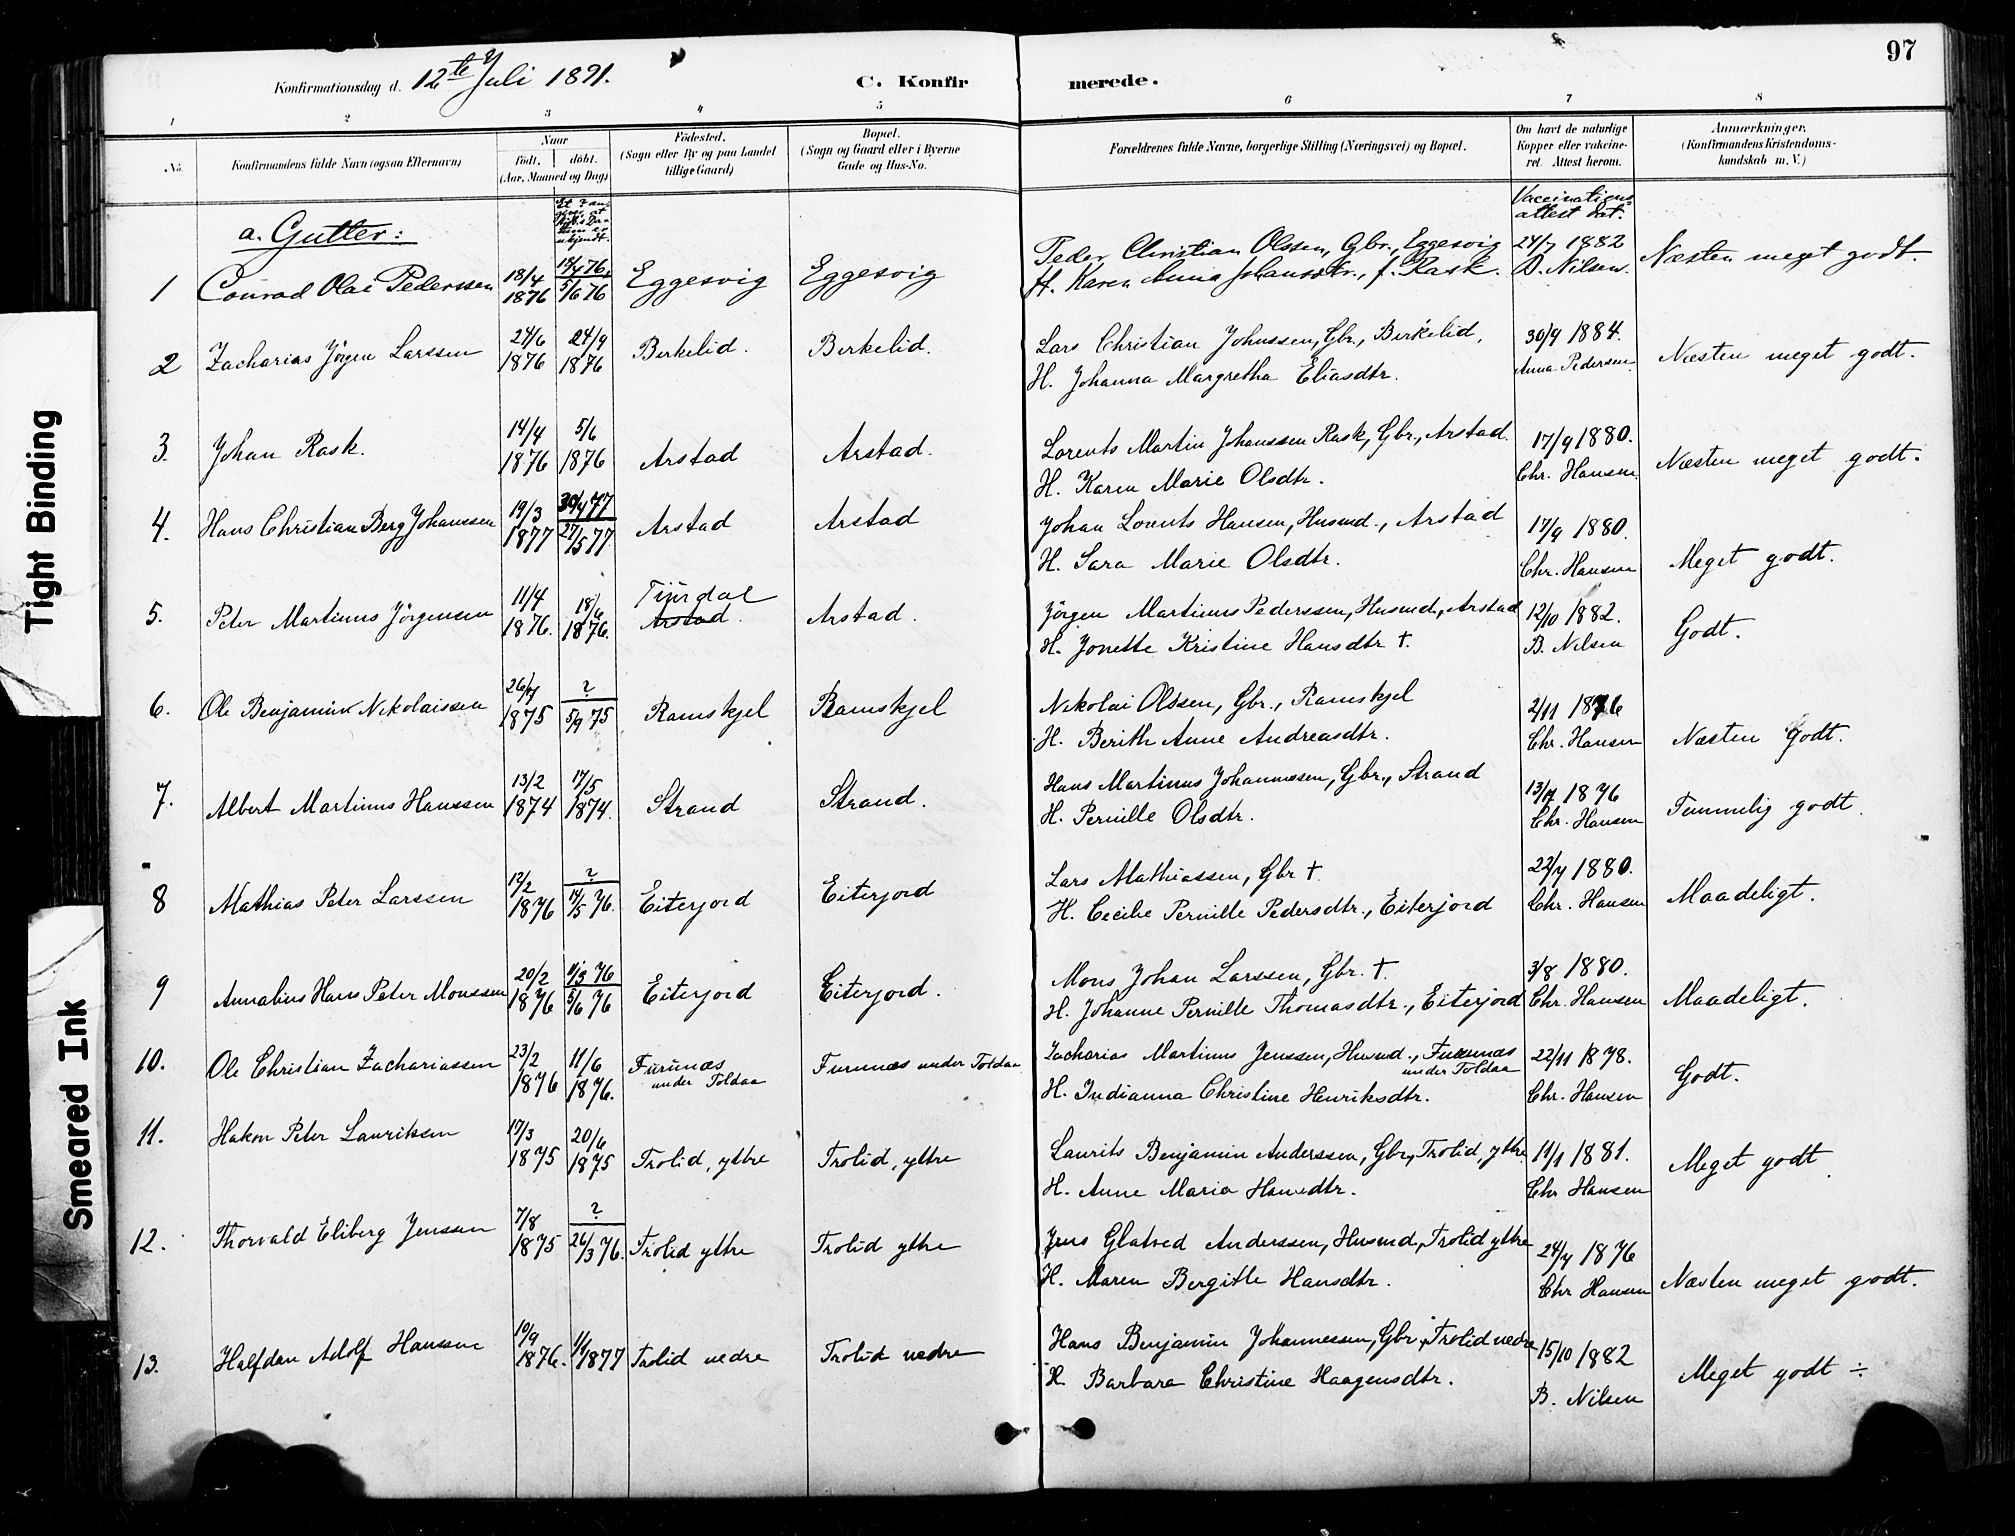 97
Konfirmationsdag d. 12te Juli 1891.
C. Konfirmerede.
1 2 3 4 5 6 7 8
No.
Konfirmandens fulde Navn (ogsaa Efternavn)
Naar
født. døbt.
(Aar, Maaned og Dag)
Fødested.
(Sogn eller By og paa Landet
tillige Gaard)
Bopæl.
(Sogn og Gaard eller i Byerne
Gade og Hus-No.
Forældrenes fulde Navne, borgerlige Stilling (Næringsvei) og Bopæl.
Om havt de naturlige
Kopper eller vakcine-
ret. Attest herom.
Anmærkninger.
(Konfirmandens Kristendoms-
kundskab m. V.)
Vaccinations-
attest dat.
a. Gutter:
1 Conrad Olai Pederssen 18/4 1876 5/6 76 Eggesvig Eggesvig
Peder Christian Olssen, Gbr., Eggesvig 24/7 1882
H. Karen Anna Johansdtr., f. Rask. B. Nilsen. Næsten meget godt.
2 Zacharias Jörgen Larssen 24/6 1876 24/9 1876 Birkelid. Birkelid.
Lars Christian Johnssen, Gbr., Birkelid, 30/9 1884.
H. Johanna Margretha Eliasdtr. Anna Pedersen. Næsten meget godt.
3. Johan Rask. 14/4 1876 5/6 1876 Arstad Arstad.
Lorents Martin Johanssen Rask, Gbr., Arstad. 17/9 1880.
H. Karen Marie Olsdtr. Chr. Hansen. Næsten meget godt.
4. Hans Christian Berg Johanssen 19/3 1877 30/4 77 27/5 77 Arstad Arstad
Johan Lorents Hansen, Husmd., Arstad 17/9 1880.
H. Sara Marie Olsdtr. Chr. Hansen Meget godt.
5. Peter Martinus Jörgensen 11/4 1876. 18/6 1876. Arstad. Arstad.
Jörgen Martinus Pederssen, Husmd., Arstad 12/10 1882.
H. Jonette Kristine Hansdtr †. B. Nilsen Godt.
6. Ole Benjamin Nikolaissen 26/7 1875 ? 5/9 75 Ramskjel Ramskjel
Nikolai Olssen, Gbr., Ramskjel 2/11 1876
H. Berith Anne Andreasdtr. Chr. Hansen Næsten Godt.
7. Albert Martinus Hanssen 13/2 1874 17/5 1874. Strand Strand.
Hans Martinus Johannessen, Gbr., Strand 1876
H. Pernille Olsdtr. Chr. Hansen Temmelig godt.
8 Mathias Peter Larssen 12/2 1876 ? 14/5 76. Eiterjord Eiterjord
Lars Mathiassen, Gbr † 22/7 1880.
H. Cecilie Pernille Pedersdtr., Eiterjord Chr. Hansen Maadeligt.
9 Annabius Hans Peter Monssen 20/2 1876 11/3 76 5/6 76 Eiterjord Eiterjord.
Mons Johan Larssen, Gbr. †. 3/8 1880.
H. Johanne Pernille Thomasdtr., Eiterjord Chr. Hansen Maadeligt.
10. Ole Christian Zachariassen 23/2 1876 11/6 1876. Furunæs under Toldaa Furunæs under Toldaa
Zacharias Martinus Jenssen, Husmd., Furunæs under Toldaa 22/11 1878.
H. Indianna Christine Henriksdtr. Chr. Hansen Godt.
11. Hakon Peter Lauritssen 17/3 1875 20/6 1875 Trolid, ytre Trolid, ytre
Laurits Benjamin Anderssen, Gbr, Trolid, ytre 11/1 1881.
H. Anne Maria Hansdtr. Chr Hansen Meget godt
12. Thorvald Eliberg Jenssen 7/8 1875 ? 26/3 76. Trolid ytre Trolid ytre
Jens Glatved Anderssen, Husmd, Trolid ytre 24/7 1876
H. Maren Bergitte Hansdtr. Chr Hansen Næsten meget godt.
13. Halfdan Adolf Hanssen 10/9 1876. 1/1 1877 Trolid nedre Trolid nedre
Hans Benjamin Johannessen, Gbr, Trolid nedre 15/10 1882
H. Barbara Christine Haagensdtr. B. Nilsen Meget godt ÷
Tight Binding
Smeared Ink